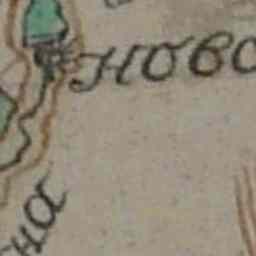 Ново
на